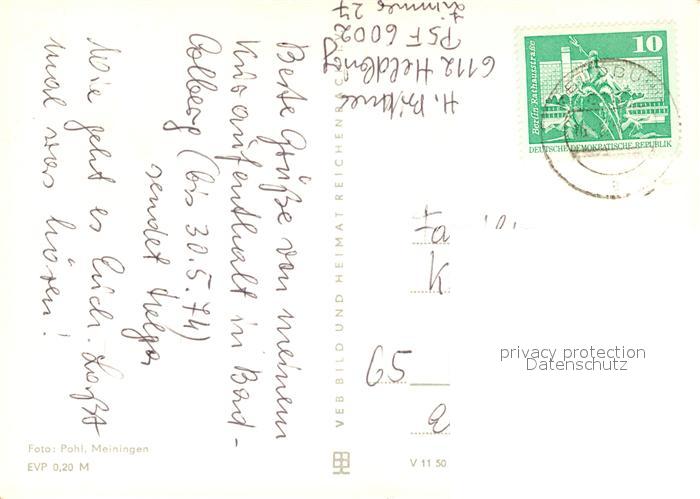 Beste Grüße von meinem
Kuraufenthalt in Bad-
Colberg (bis 30.5.74)
sendet Helga
Wie geht es Euch. Laßt
mal was hören!
Foto: Pohl, Meiningen
EVP 0,20 M
VEB BILD UND HEIMAT REICHENBACH
H. Bittner
6112 Heldburg
PSF 6002
Zimmer 27
10
Berlin Rathausstraße
DEUTSCHE DEMOKRATISCHE REPUBLIK
Fa
K
65
V 11 50
privacy protection
Datenschutz